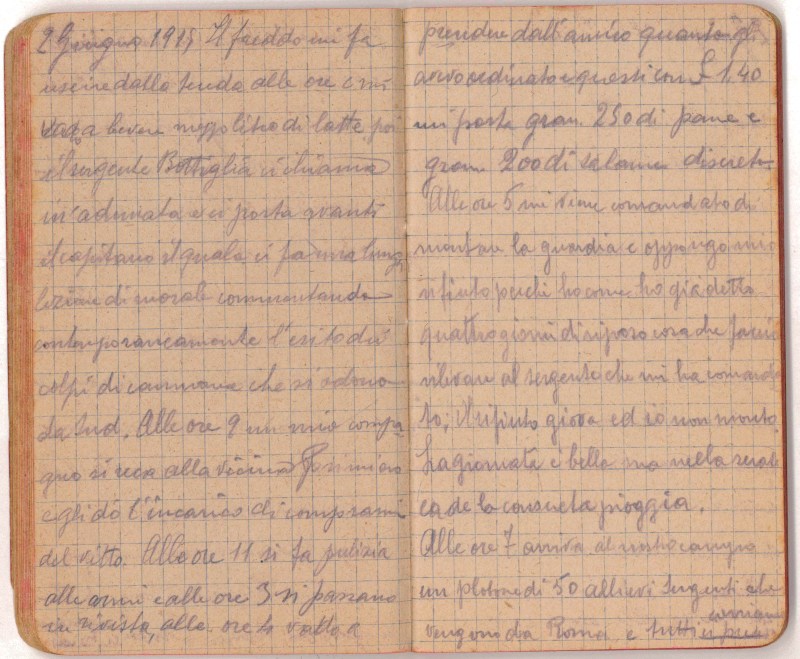 2 Giugno 1915 Il freddo mi fa
uscire dalla tenda alle ore 6 mi
vado a bevere mezzo litro di latte, poi
il sergente Bottiglia ci chiama
in adunata e ci porta avanti
il capitano il quale ci fa una lunga
lezione di morale commentando
contemporaneamente l'esito dei
colpi di cannone che si odono
da Sud. Alle ore 9 un mio compa-
gno si reca alla vicina
e gli dò l'incarico di comprarmi
del vitto. Alle ore 11 si fa pulizia
alle armi e alle ore 3 si passano
in rivista, alle ore 4 vado a
prendere dall'amico quanto gli
avevo ordinato e questi con £ 1,40
mi porta gram. 250 di pane e
gram. 200 di salame discreto
Alle ore 5 mi viene comandato di
montare la guardia e oppongo mio
rifiuto perchè ho come ho già detto
quattro giorni di riposo cosa che faccio
rilevare al sergente che mi ha comanda-
to; il rifiuto giova ed io non monto
La giornata è bella ma nella serata
cade la consueta pioggia.
Alle ore 7 arriva al nostro campo
un plotone di 50 allievi sergenti che
vengono da Roma e tutti